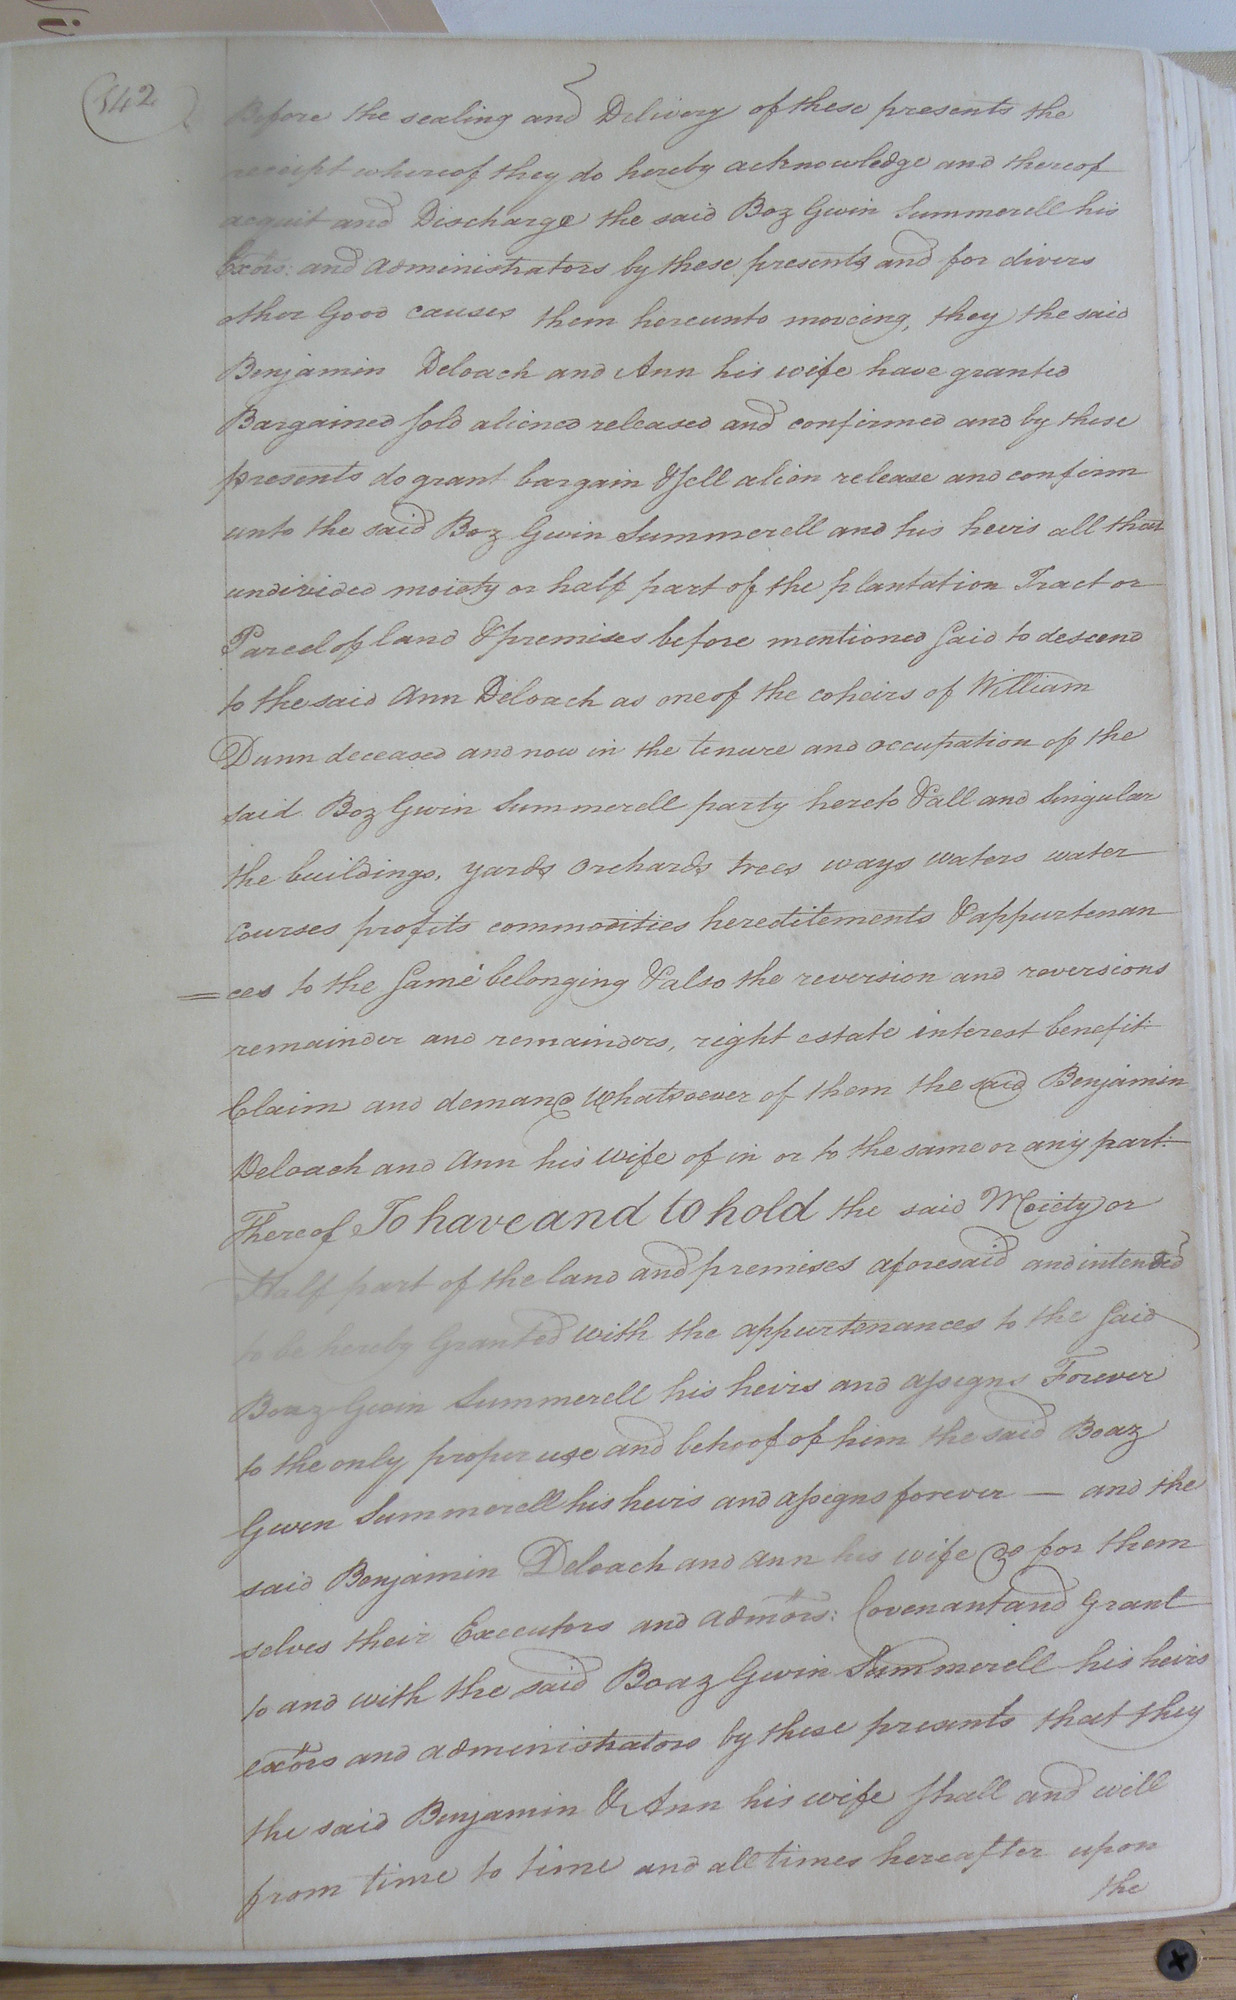 542
Before the sealing and Delivery of these presents the
receipt whereof they do hereby acknowledge and thereof
acquit and Discharge the said Boz Gwin Summerell his
Exors: and administrators by these presents and for divers
other Good causes them hereunto moveing, they the said
Benjamin Deloach and Ann his wife have granted
Bargained sold aliened released and confirmed and by these
presents do grant bargain & sell alien release and confirm
unto the said Boz Gwin Summerell and his heirs all that
undivided moiety or half part of the plantation Tract or
Parcel of land & premises before mentioned said to descend
to the said Ann Deloach as one of the coheirs of William
Dunn deceased and now in the tenure and occupation of the
said Boz Gwin Summerell party hereto & all and singular
the buildings, yards orchards trees ways waters water
courses profits commodities hereditements & appurtenan
=ces to the same belonging & also the reversion and reversions
remainder and remainders, right estate interest benefit
Claim and demand whatsoever of them the said Benjamin
Deloach and Ann his wife of in or to the same or any part
Thereof To have and to hold the said Moiety or
Half part of the land and premises aforesaid and intended
to be hereby Granted with the appurtenances to the said
Boaz Gwin Summerell his heirs and assigns Forever
to the only proper use and behoof of him the said Boaz
Gwen Summerell his heirs and assigns forever — and the
said Benjamin Deloach and Ann his wife do for them
selves their Executors and admors: Covenant and Grant
to and with the said Boaz Gwin Summerell his heirs
exors and administrators by these presents that they
the said Benjamin & Ann his wife shall and will
from time to time and all times hereafter upon
the